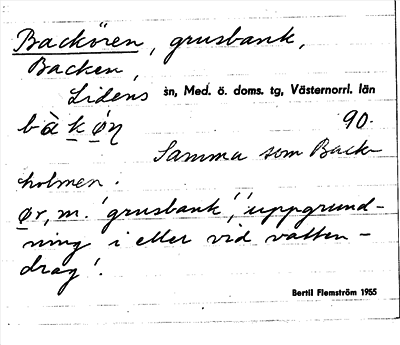 Backören, grusbank,
Backen,
Lidens sn, Med. ö. doms. tg, Västernorrl. län
bàkøn 90.
Samma som Back-
holmen.
ør, m. 'grusbank', 'uppgrund-
ning i eller vid vatten-
drag'.
Bertil Flemström 1955